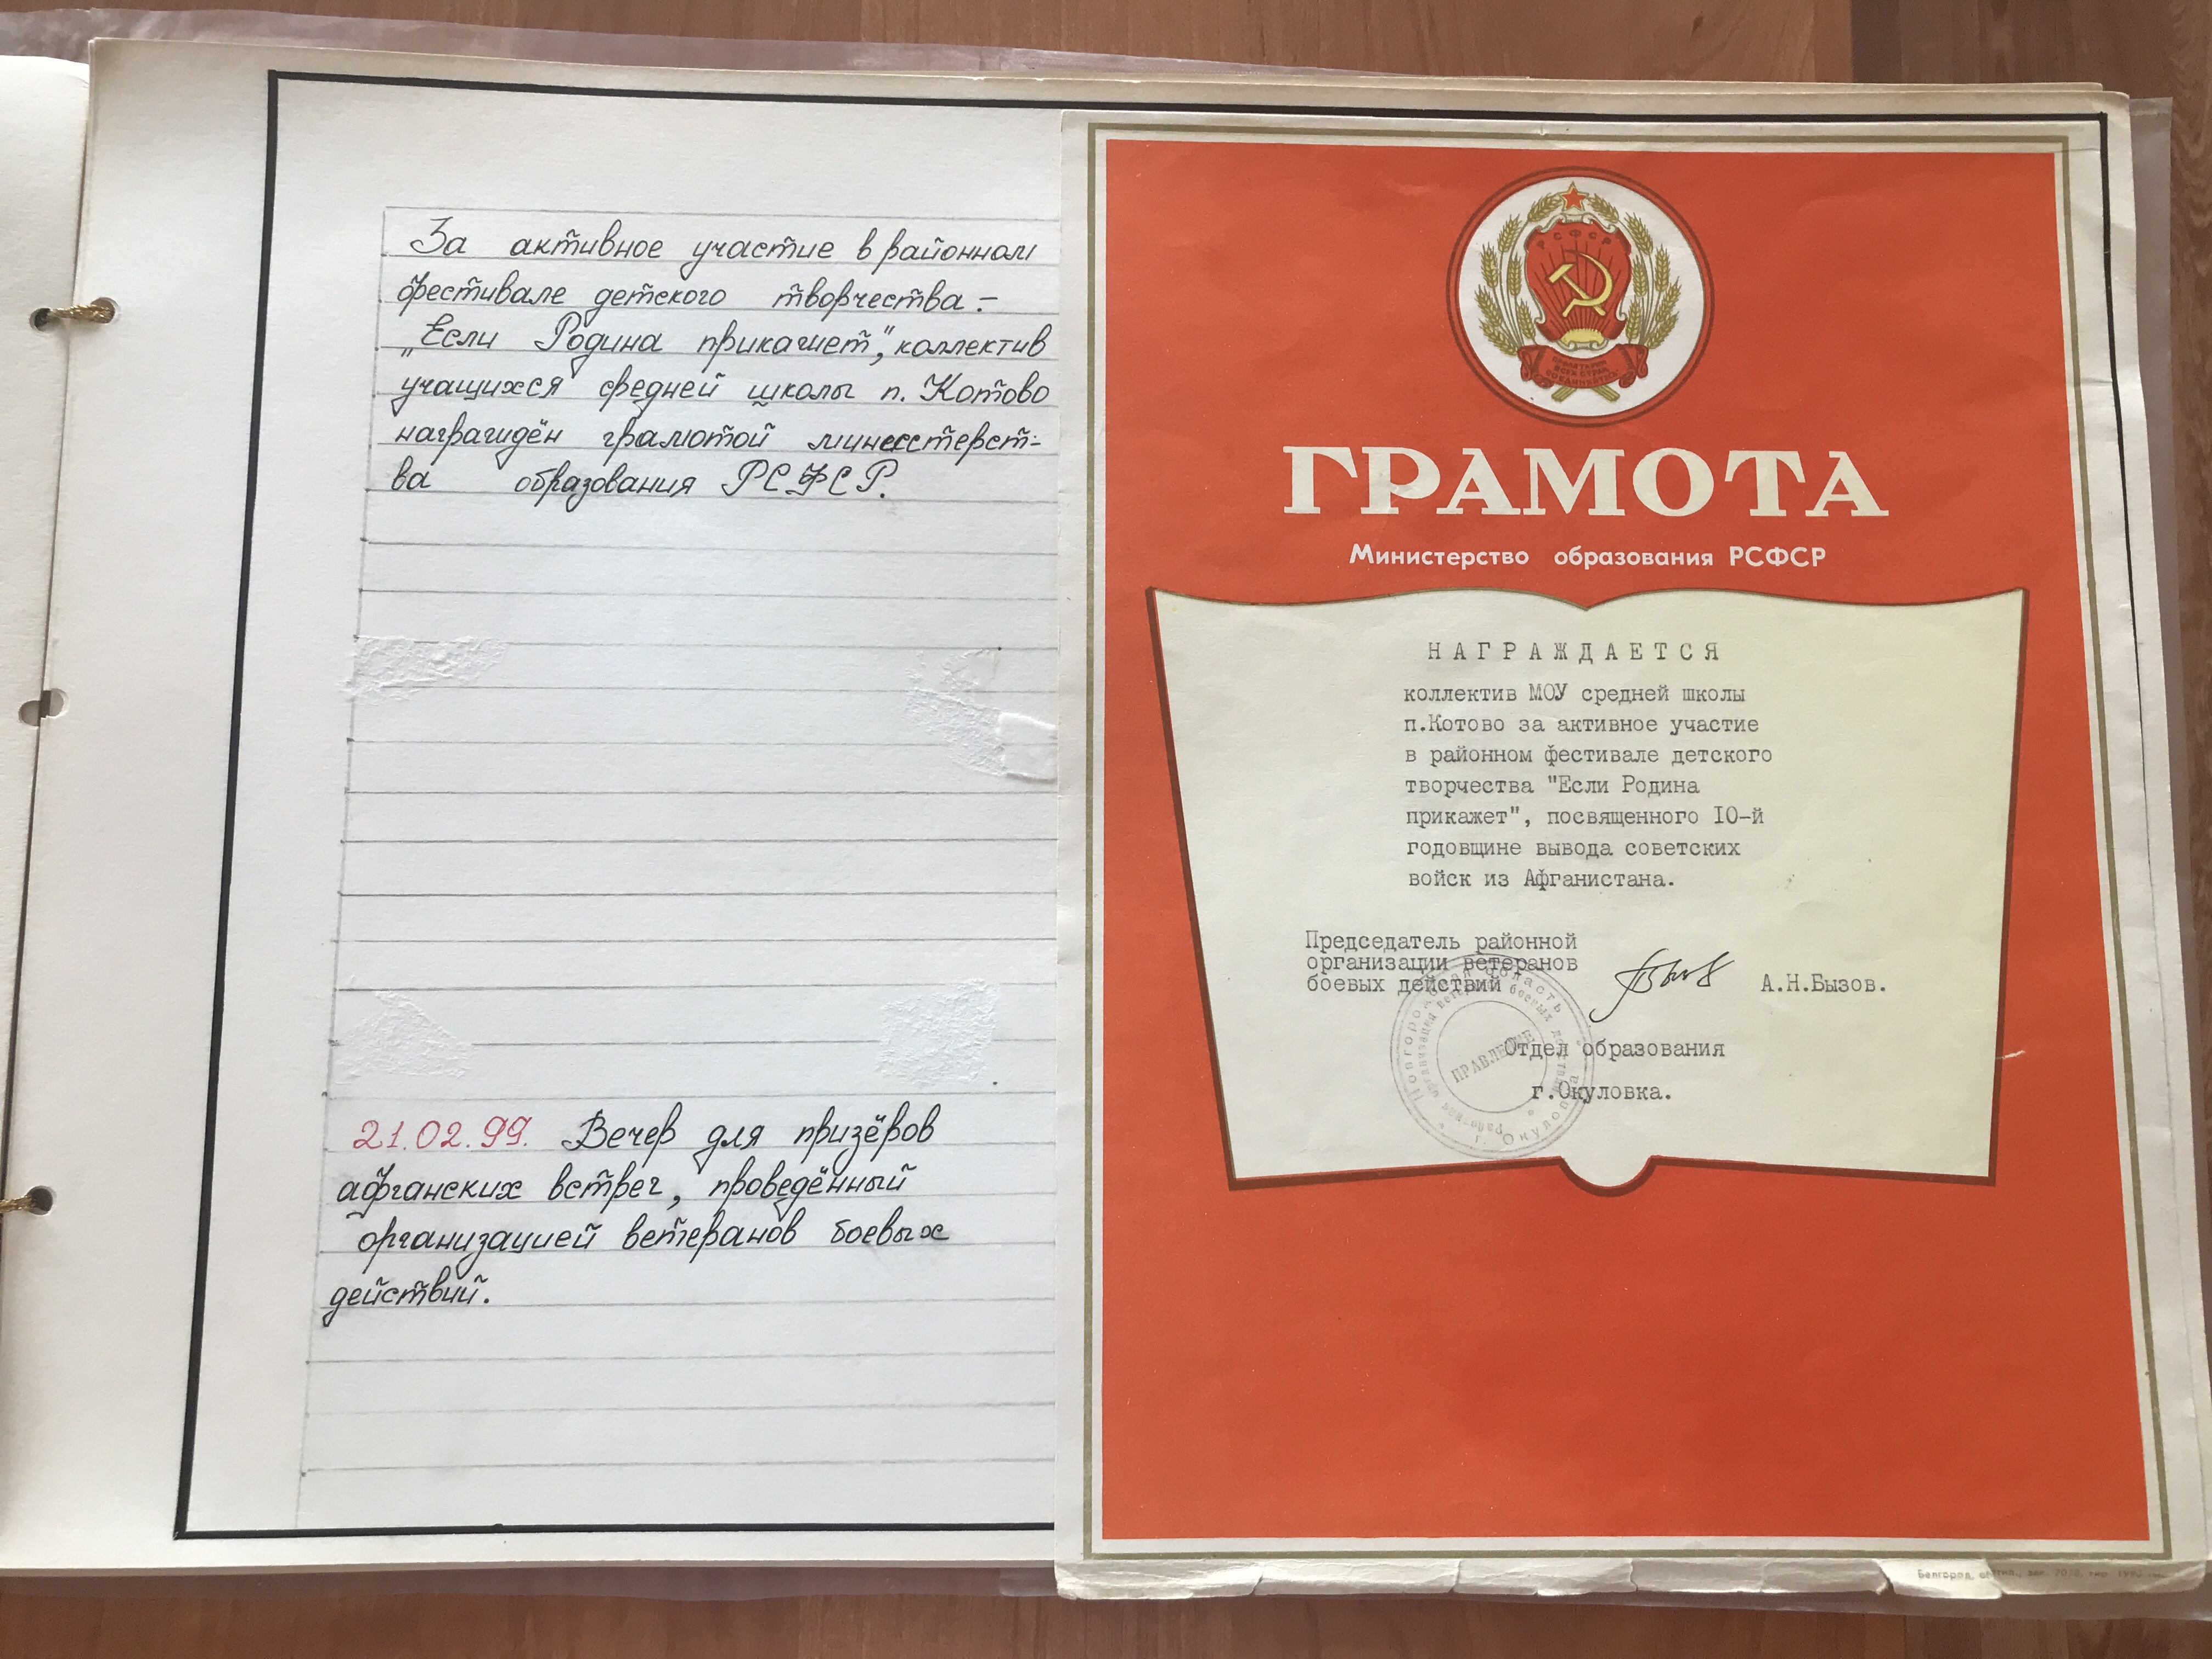 За активное участие в районном
фестивале детского творчества –
„Если Родина прикажет", коллектив
учащихся средней школы п. Котово
награждён грамотой министерст-
ва образования РСФСР.
21.02.99. Вечер для призёров
афганских встреч, проведённый
организацией ветеранов боевых
действий.
РСФСР
ГРАМОТА
Министерство образования РСФСР
НАГРАЖДАЕТСЯ
коллектив МОУ средней школы
п.Котово за активное участие
в районном фестивале детского
творчества "Если Родина
прикажет", посвященного 10-й
годовщине вывода советских
войск из Афганистана.
Председатель районной
организации ветеранов
боевых действий
А.Н.Бызов.
Отдел образования
г.Окуловка.
Новгородская область
г. Окуловка
районная организация ветеранов боевых действий
ПРАВЛЕНИЕ
Белгород,